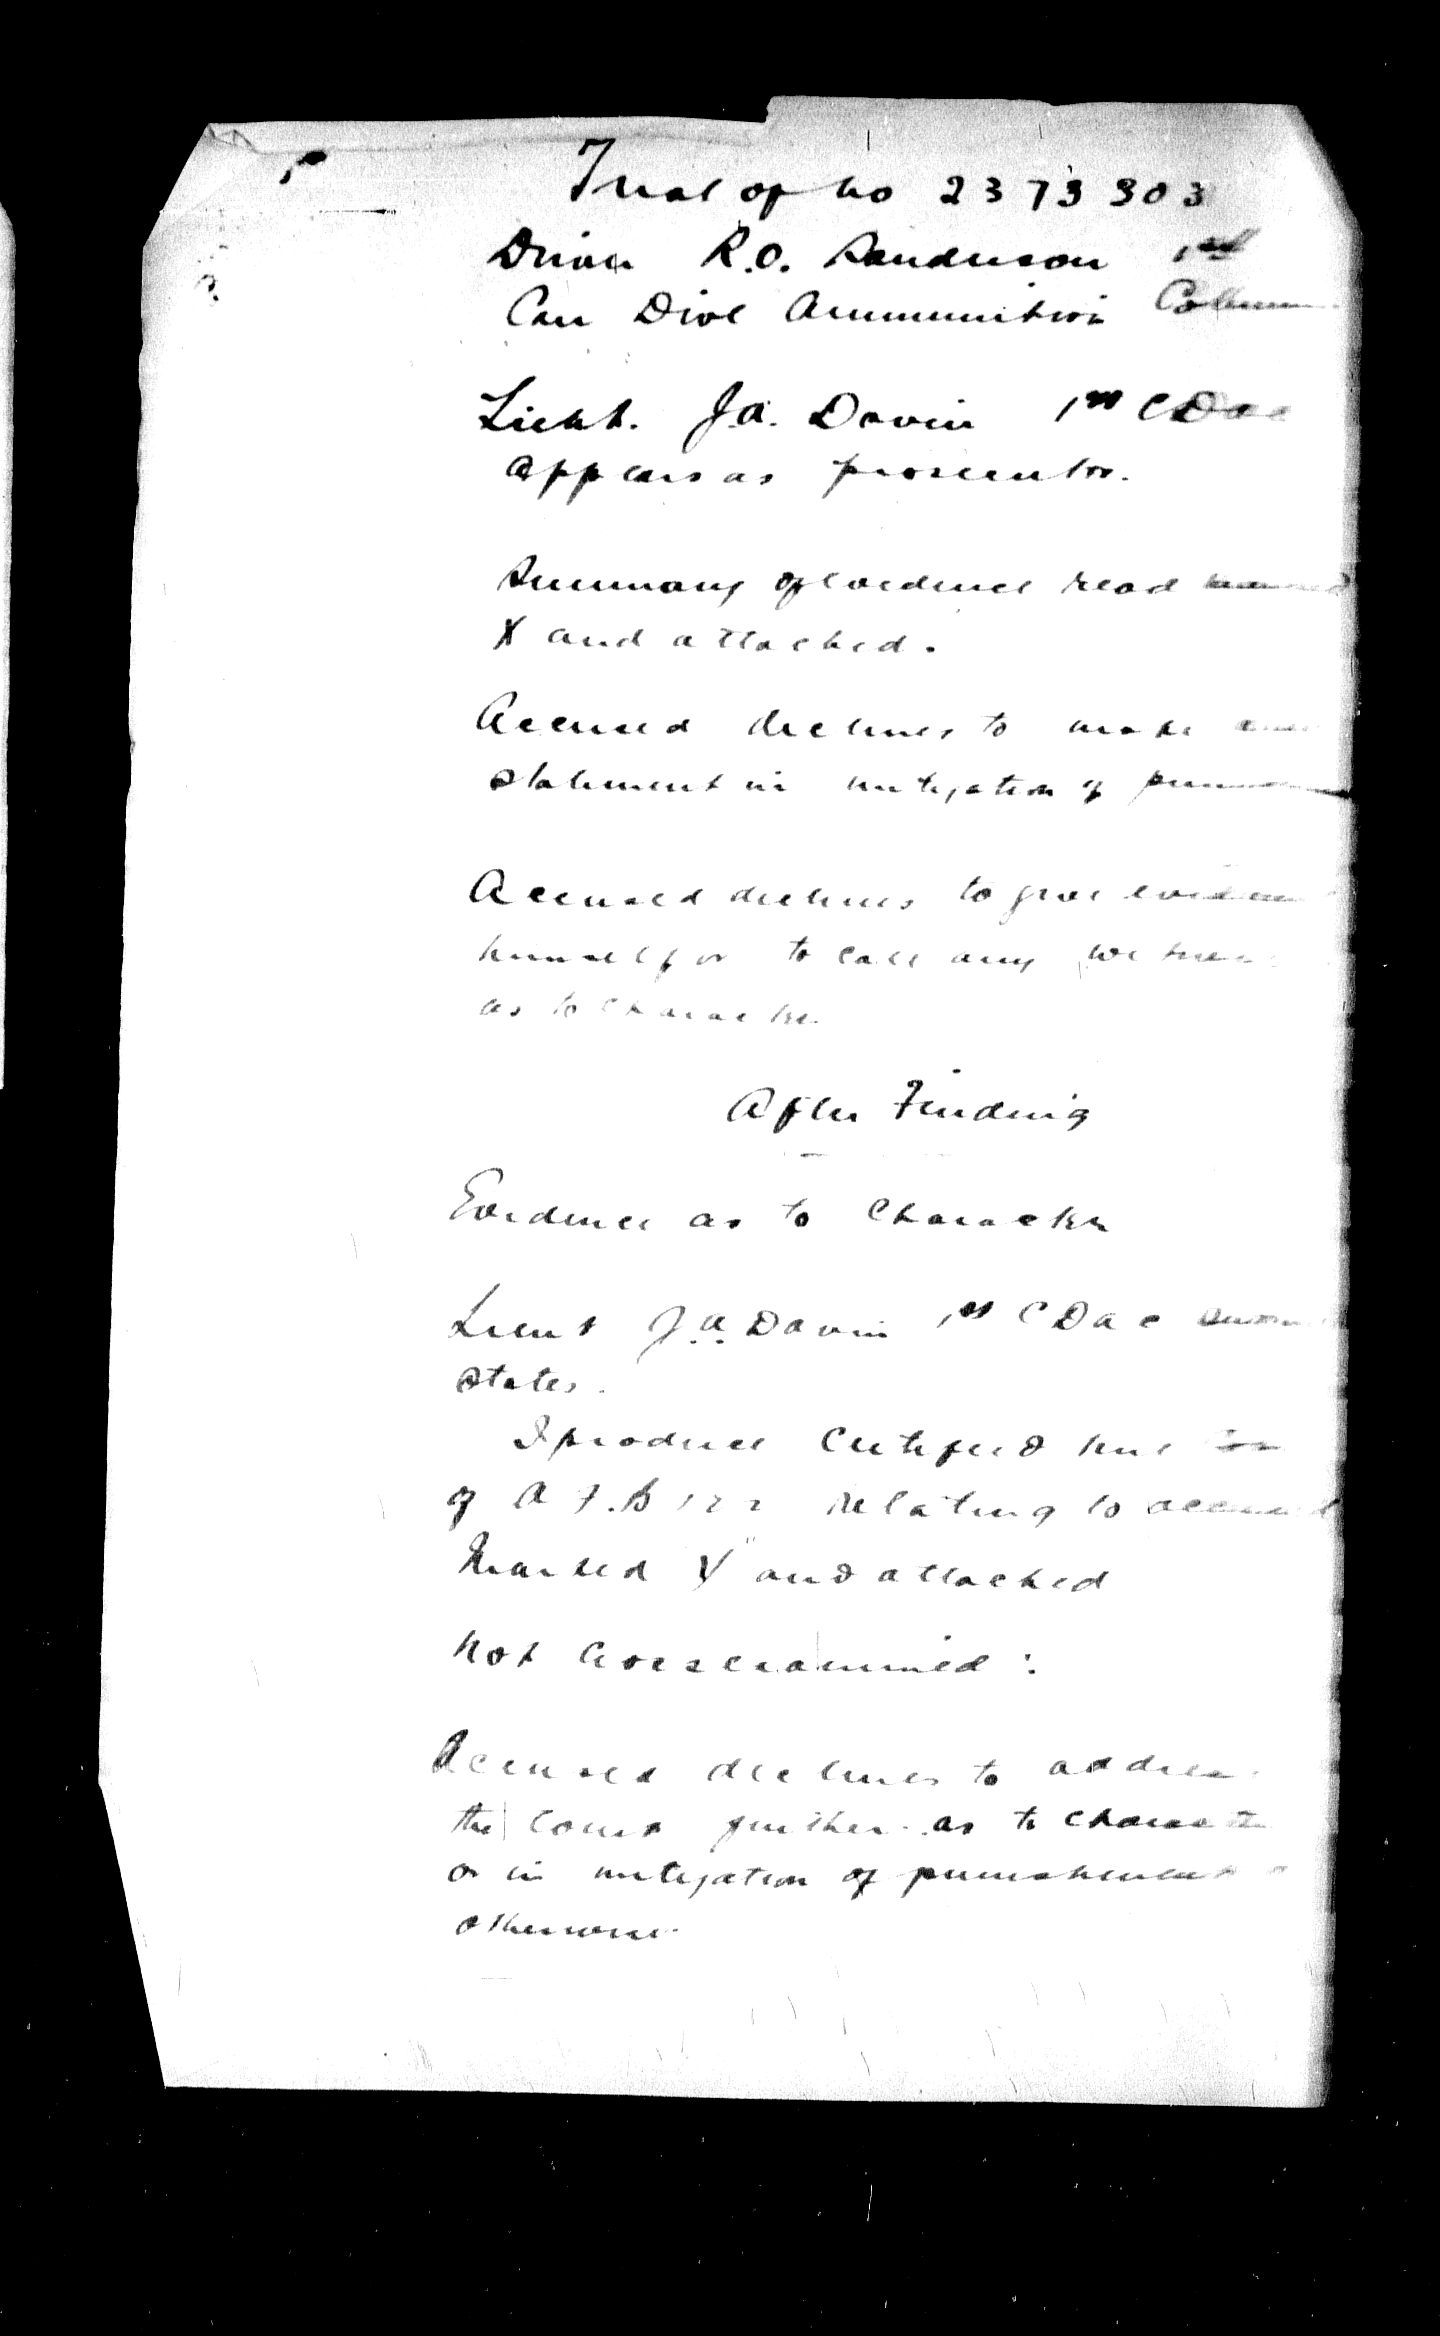 Trial of No 2373303
Driver R.O. Sanderson 1st
Can Divl Ammunition Column
Lieut. J.A. Davin 1st C D A C
appears as prosecutor.
Summary of evidence read marked
X and attached.
Accused declines to make any
statement in mitigation of
Accused declines to give evidence
himself or to call any witness
as to character
After Finding
Evidence as to Character
Lieut J.A. Davin 1st C D A C sworn
states.
I produce certified true
of A.F.B 122 relating to accused
Marked Y and attached
Not Crossexamined :
Accused declines to address
the Court further as to character
or in mitigation of punishment or
otherwise.